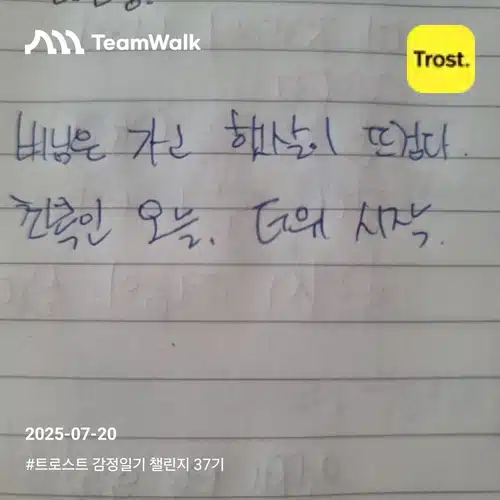 TeamWalk
Trost.
비님은 가고 햅살이 뜨겁다.
초복인 오늘. 더위 시작.
2025-07-20
#트로스트 감정일기 챌린지 37기